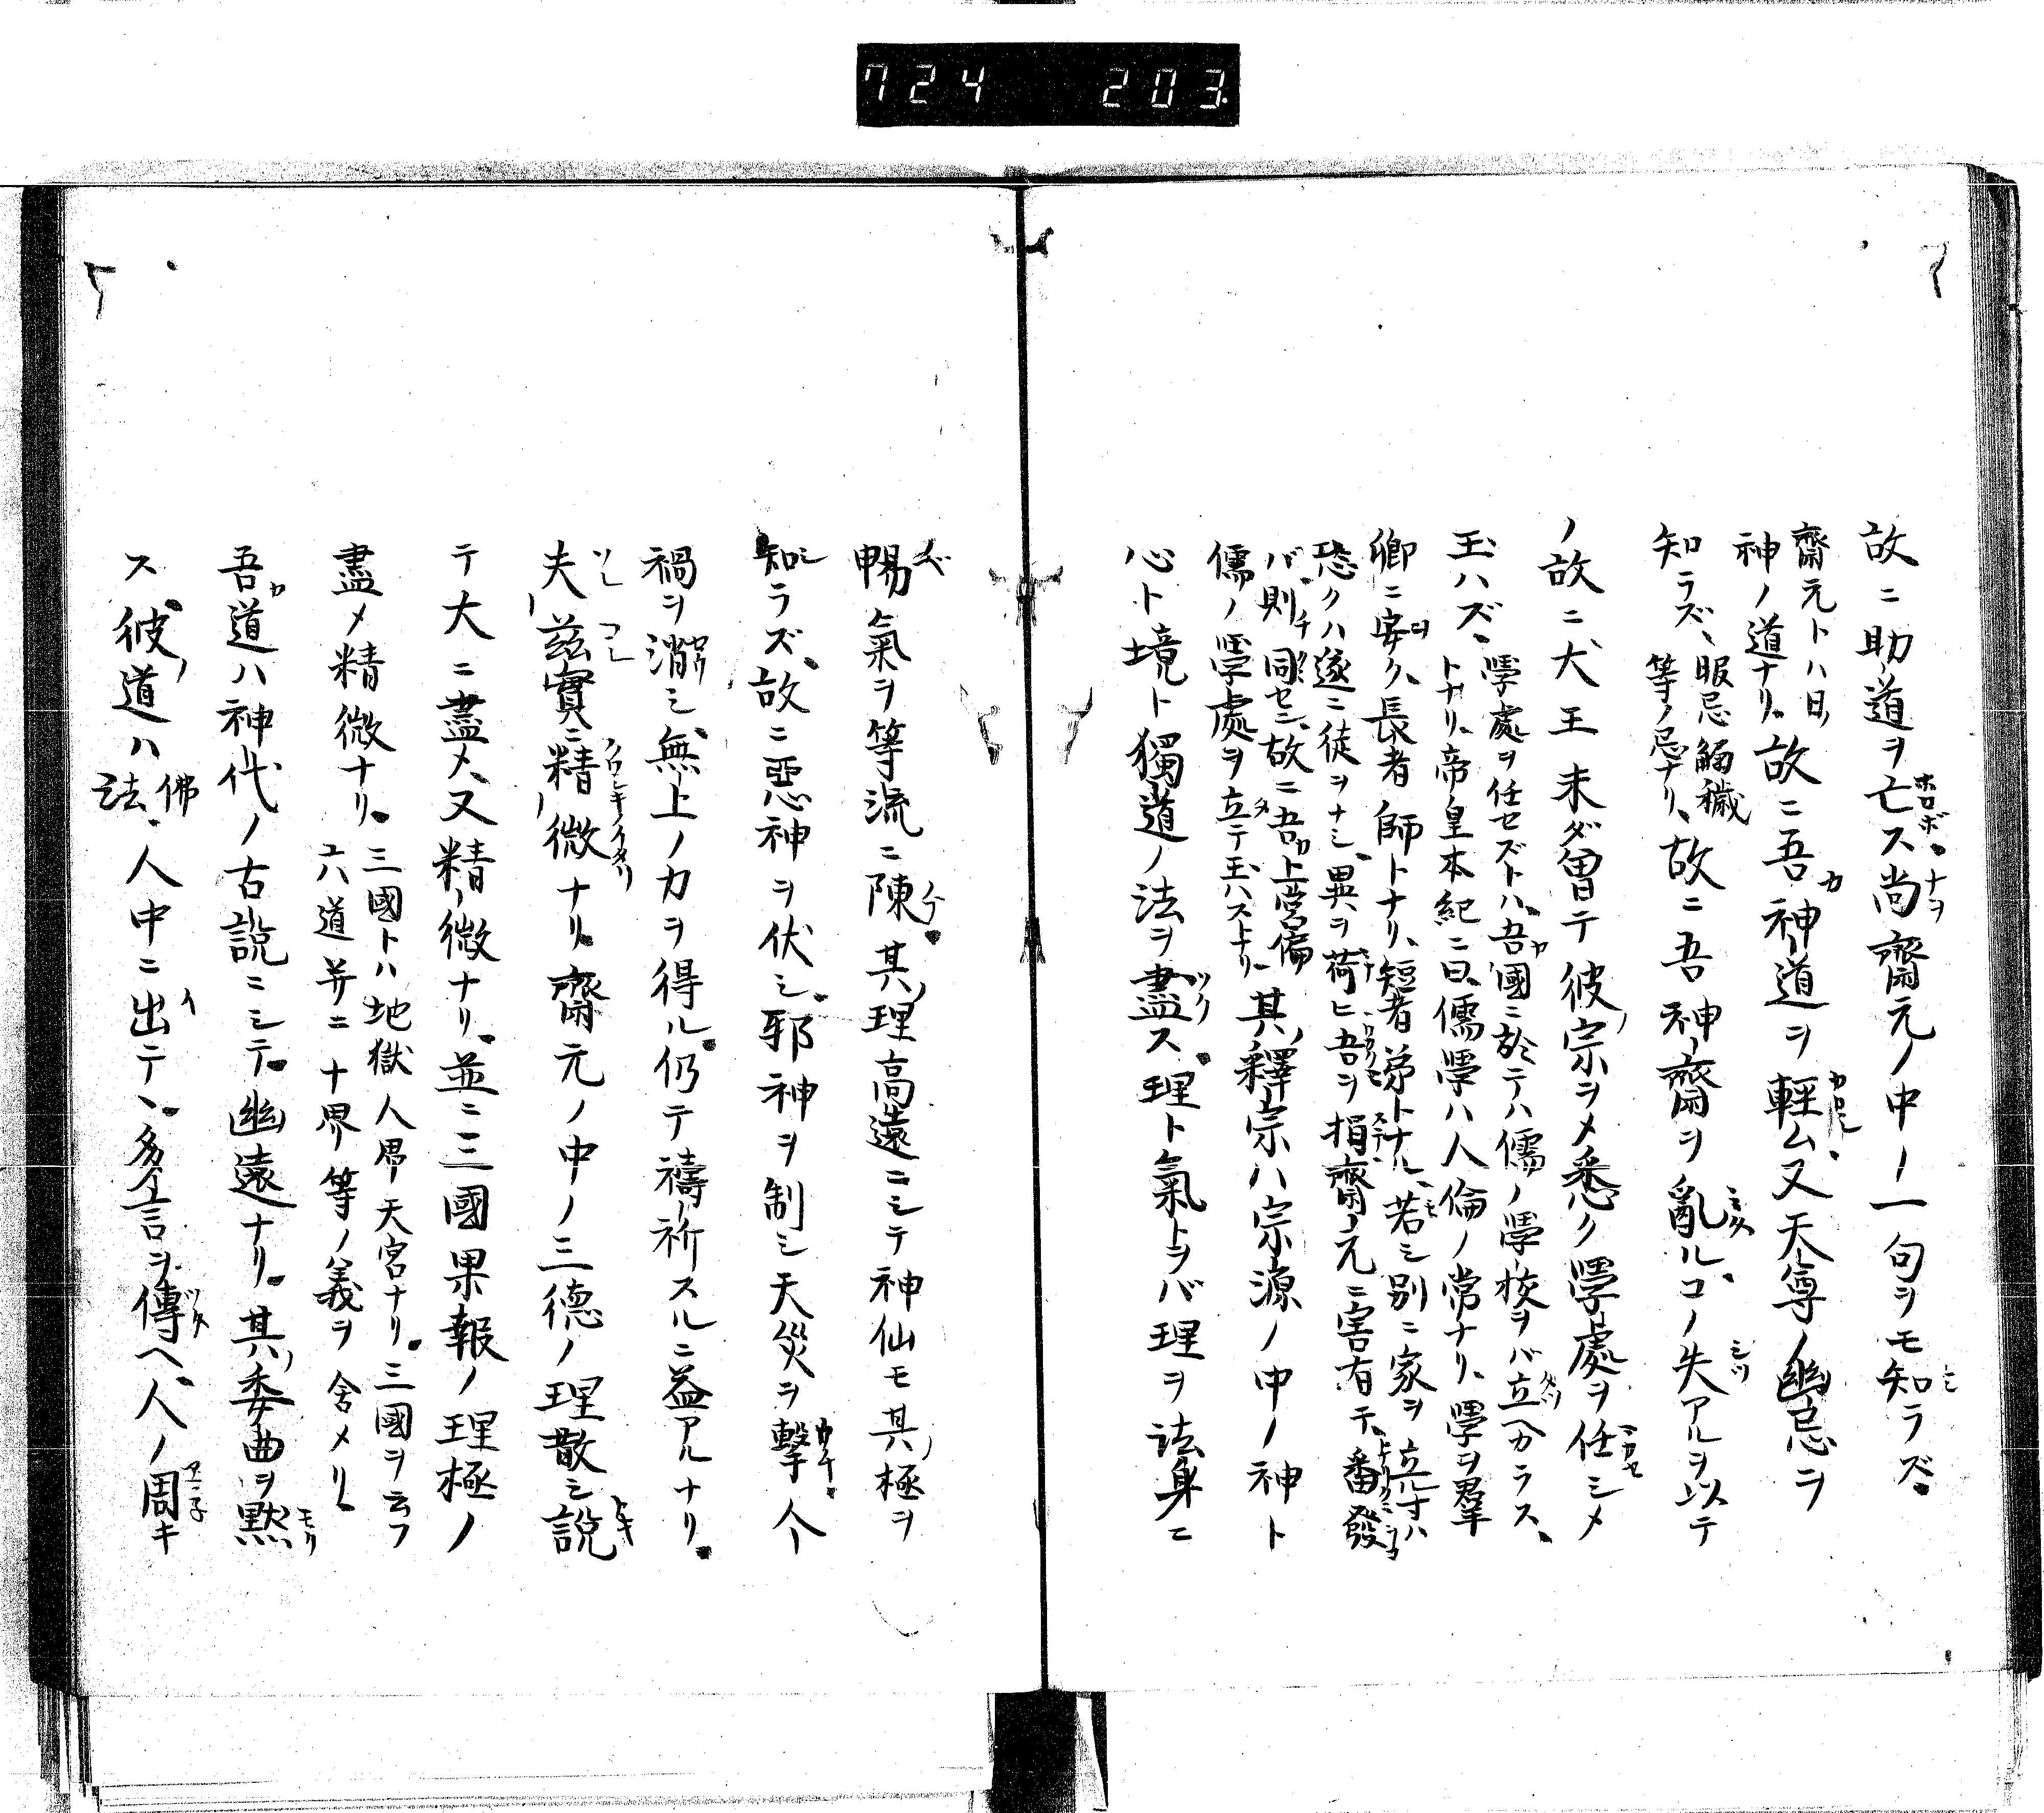 724 203
故ニ助道ヲ亡ス尚齋元ノ中ノ一句ヲモ知ラズ
齋元トハ日
神ノ道ナリ
故ニ吾神道ヲ輕ム又天尊ノ幽忌ヲ
知ラズ
服忌觸穢
等ノ忌ナリ
故ニ吾神齋ヲ亂ルコノ失アルヲ以テ
ノ故ニ大王未ダ曽テ彼宗ヲメ悉ク學處ヲ任シメ
玉ハズ
學處ヲ任セズトハ吾國ニ於テハ儒ノ學校ヲバ立ヘカラス
トナリ帝皇本紀ニ曰儒學ハ人倫ノ常ナリ學ヲ羣
卿ニ安ク長者師トナリ短者弟トナル若シ別ニ家ヲ立ル寸ハ
恐クハ遂ニ徒ヲナシ異ヲ荷ヒ吾ヲ損齋元ニ害有テ番發
バ則チ同セニ故ニ吾上宮偏
儒ノ學處ヲ立テ玉ハストナリ
其釋宗ハ宗源ノ中ノ神ト
心ト境ト獨道ノ法ヲ盡ス理ト氣トヲバ理ヲ法身ニ
暢氣ヲ等流ニ陳其理高遠ニシテ神仙モ其極ヲ
知ラズ故ニ惡神ヲ伏シ邪神ヲ制シ天災ヲ撃人
禍ヲ消シ無上ノカヲ得ル仍テ禱祈スルニ益アルナリ
夫茲實ニ精微ナリ齋元ノ中ノ三德ノ理散シ說
テ大ニ盡メ又精微ナリ並ニ三國果報ノ理極ノ
盡メ精微ナリ
三國トハ地獄人界天宮ナリ三國ヲ云フ
六道并ニ十界等ノ義ヲ含メリ
吾道ハ神代ノ古說ニシテ幽遠ナリ其委曲ヲ黙
ス彼道ハ
佛
法
人中ニ出テ多言ヲ傳ヘ人ノ周キ